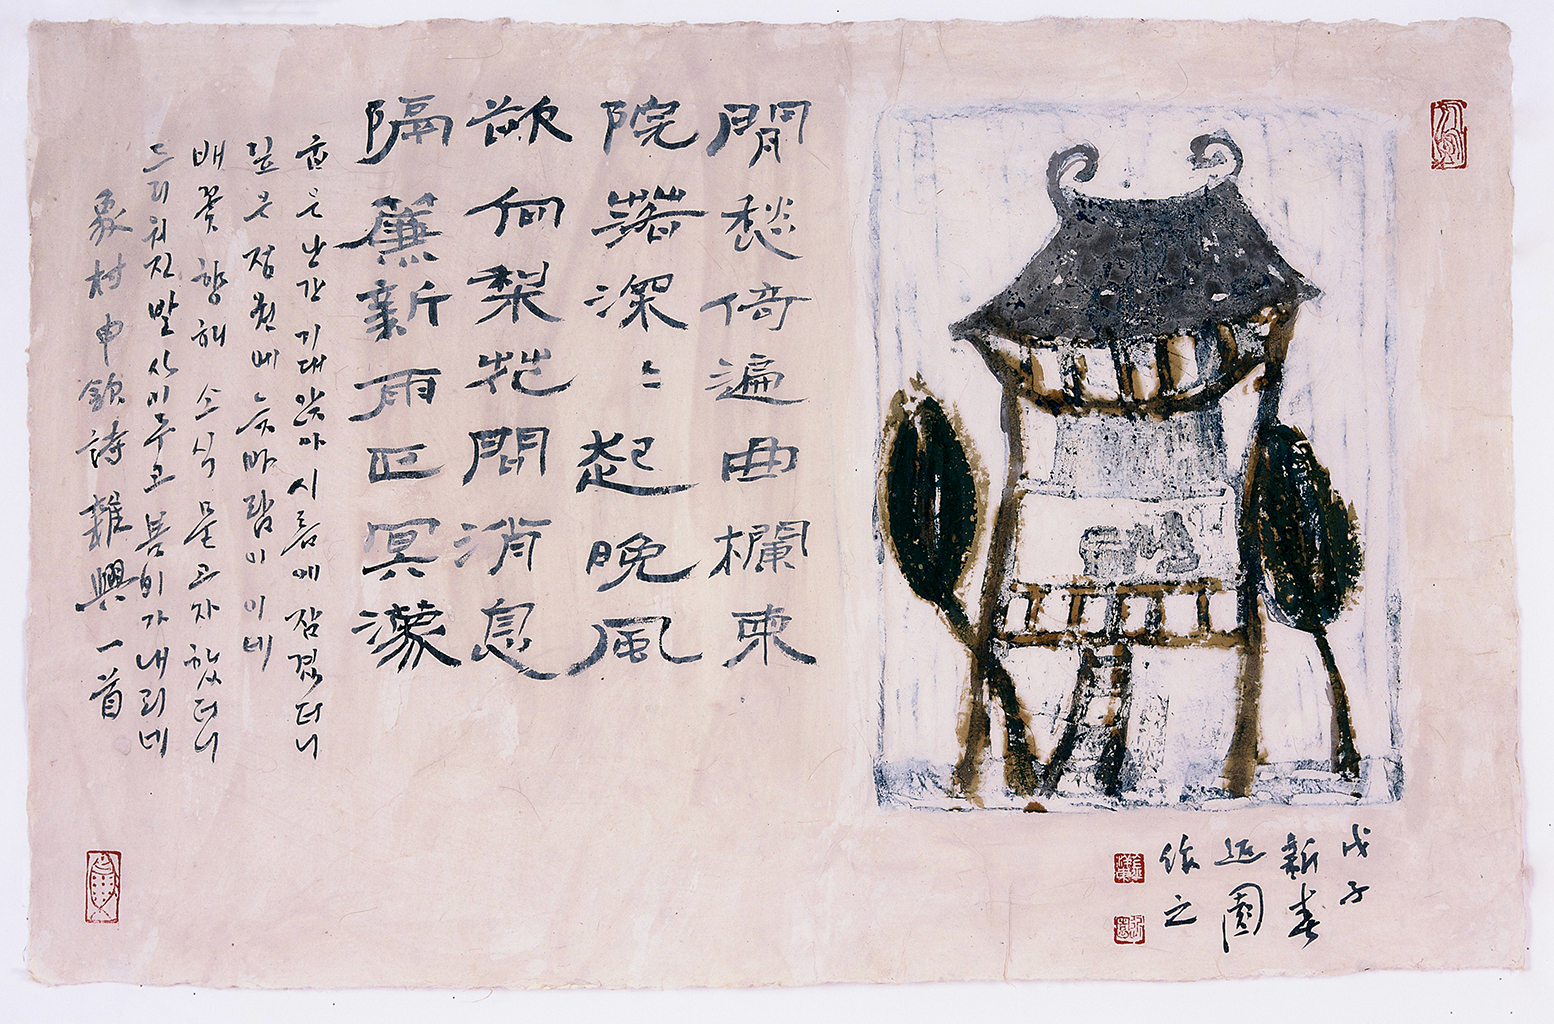 閒愁倚遍曲欄東
院落深〻起晩風
欲向梨花問消息
隔簾新雨正冥濛
굽은 난간 기대앉아 시름에 잠겼더니
깊은 정원에 늦바람이 이네
배꽃 향해 소식 물고자 하였더니
드리워진 발 사이두고 봄비가 내리네
象村申欽詩 雜興一首
戊子
新春
近園
作之